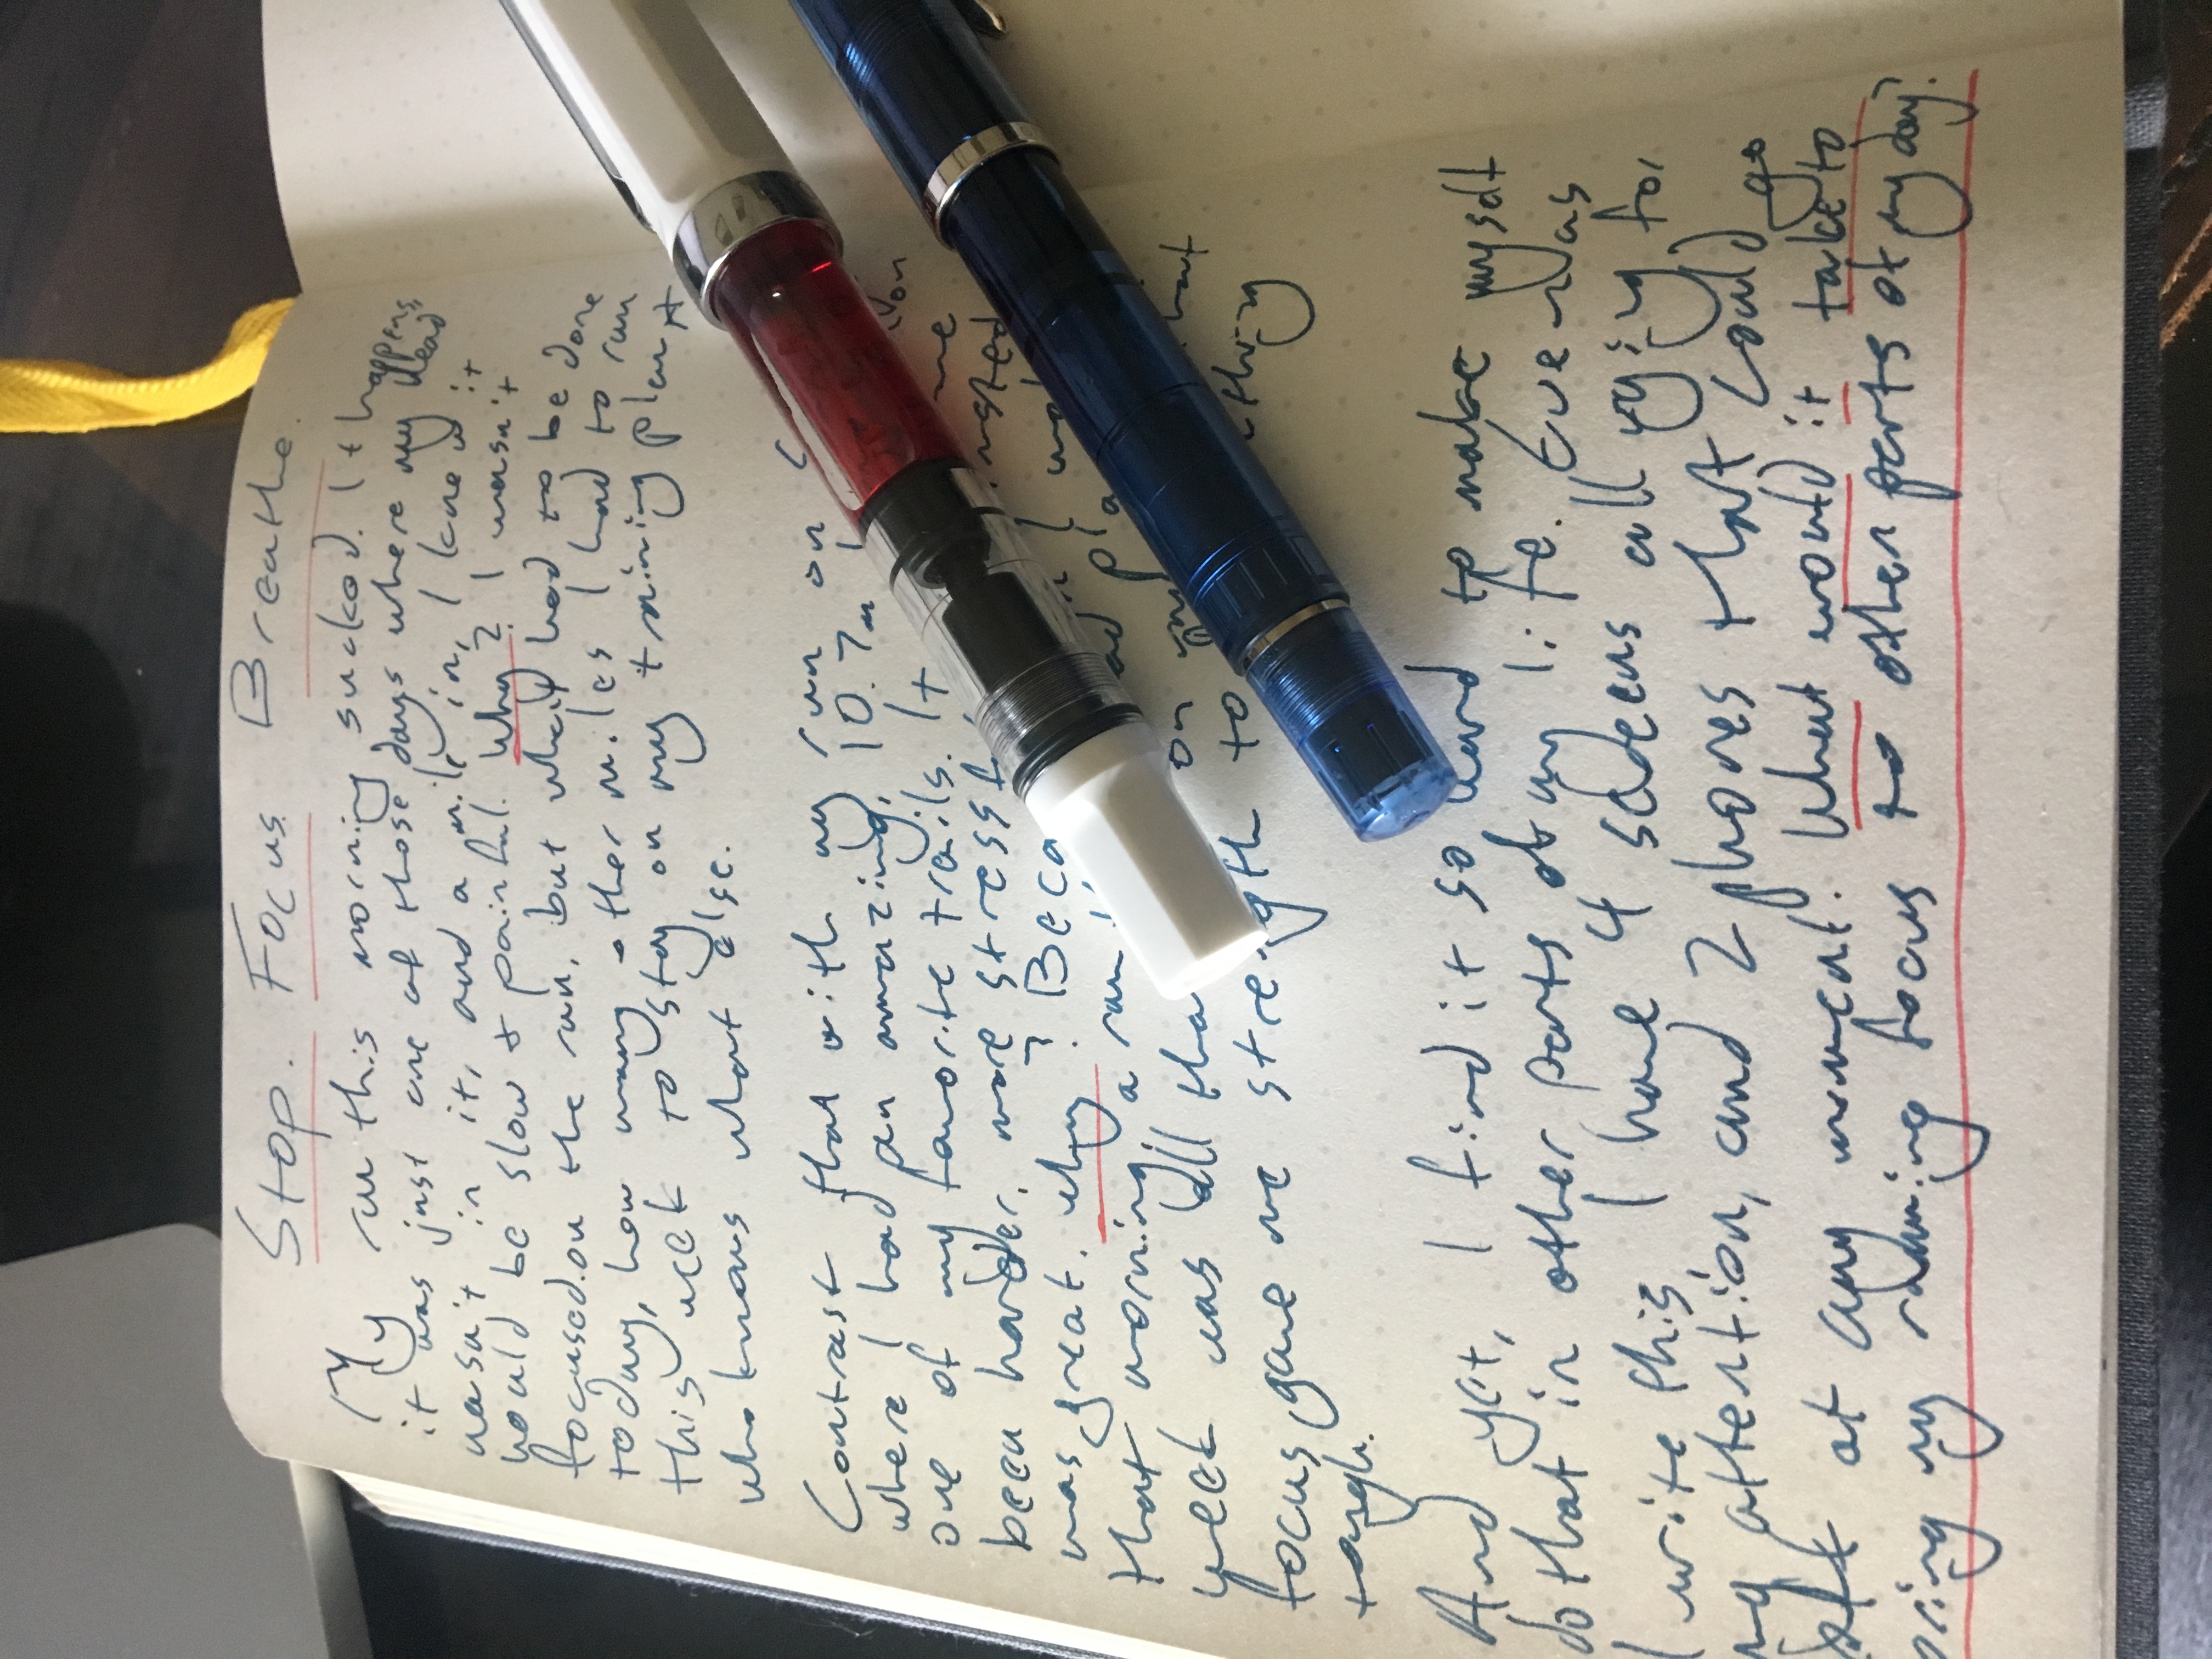 Stop. Focus. Breathe.
My run this morning sucked. It happens,
it was just one of those days where my head
wasn't in it, and a mile in, I knew it
would be slow & painful. Why? I wasn't
focused on the run, but what had to be done
today, how many other miles I had to run
this week to stay on my training plan &
who knows what else.
Contrast that with my run on
where I had an amazing, 10.7m
one of my favorite trails. It
been harder, more stress
was great. Why?
that morning a run
week was all that on
focus gave me strength to
tough.
And yet, I find it so hard to make myself
do that in other parts of my life. Even as
I write this I have 4 screens all vying for
my attention, and 2 phones that could go
off at any moment. What would it take to
bring my running focus to other parts of my day?